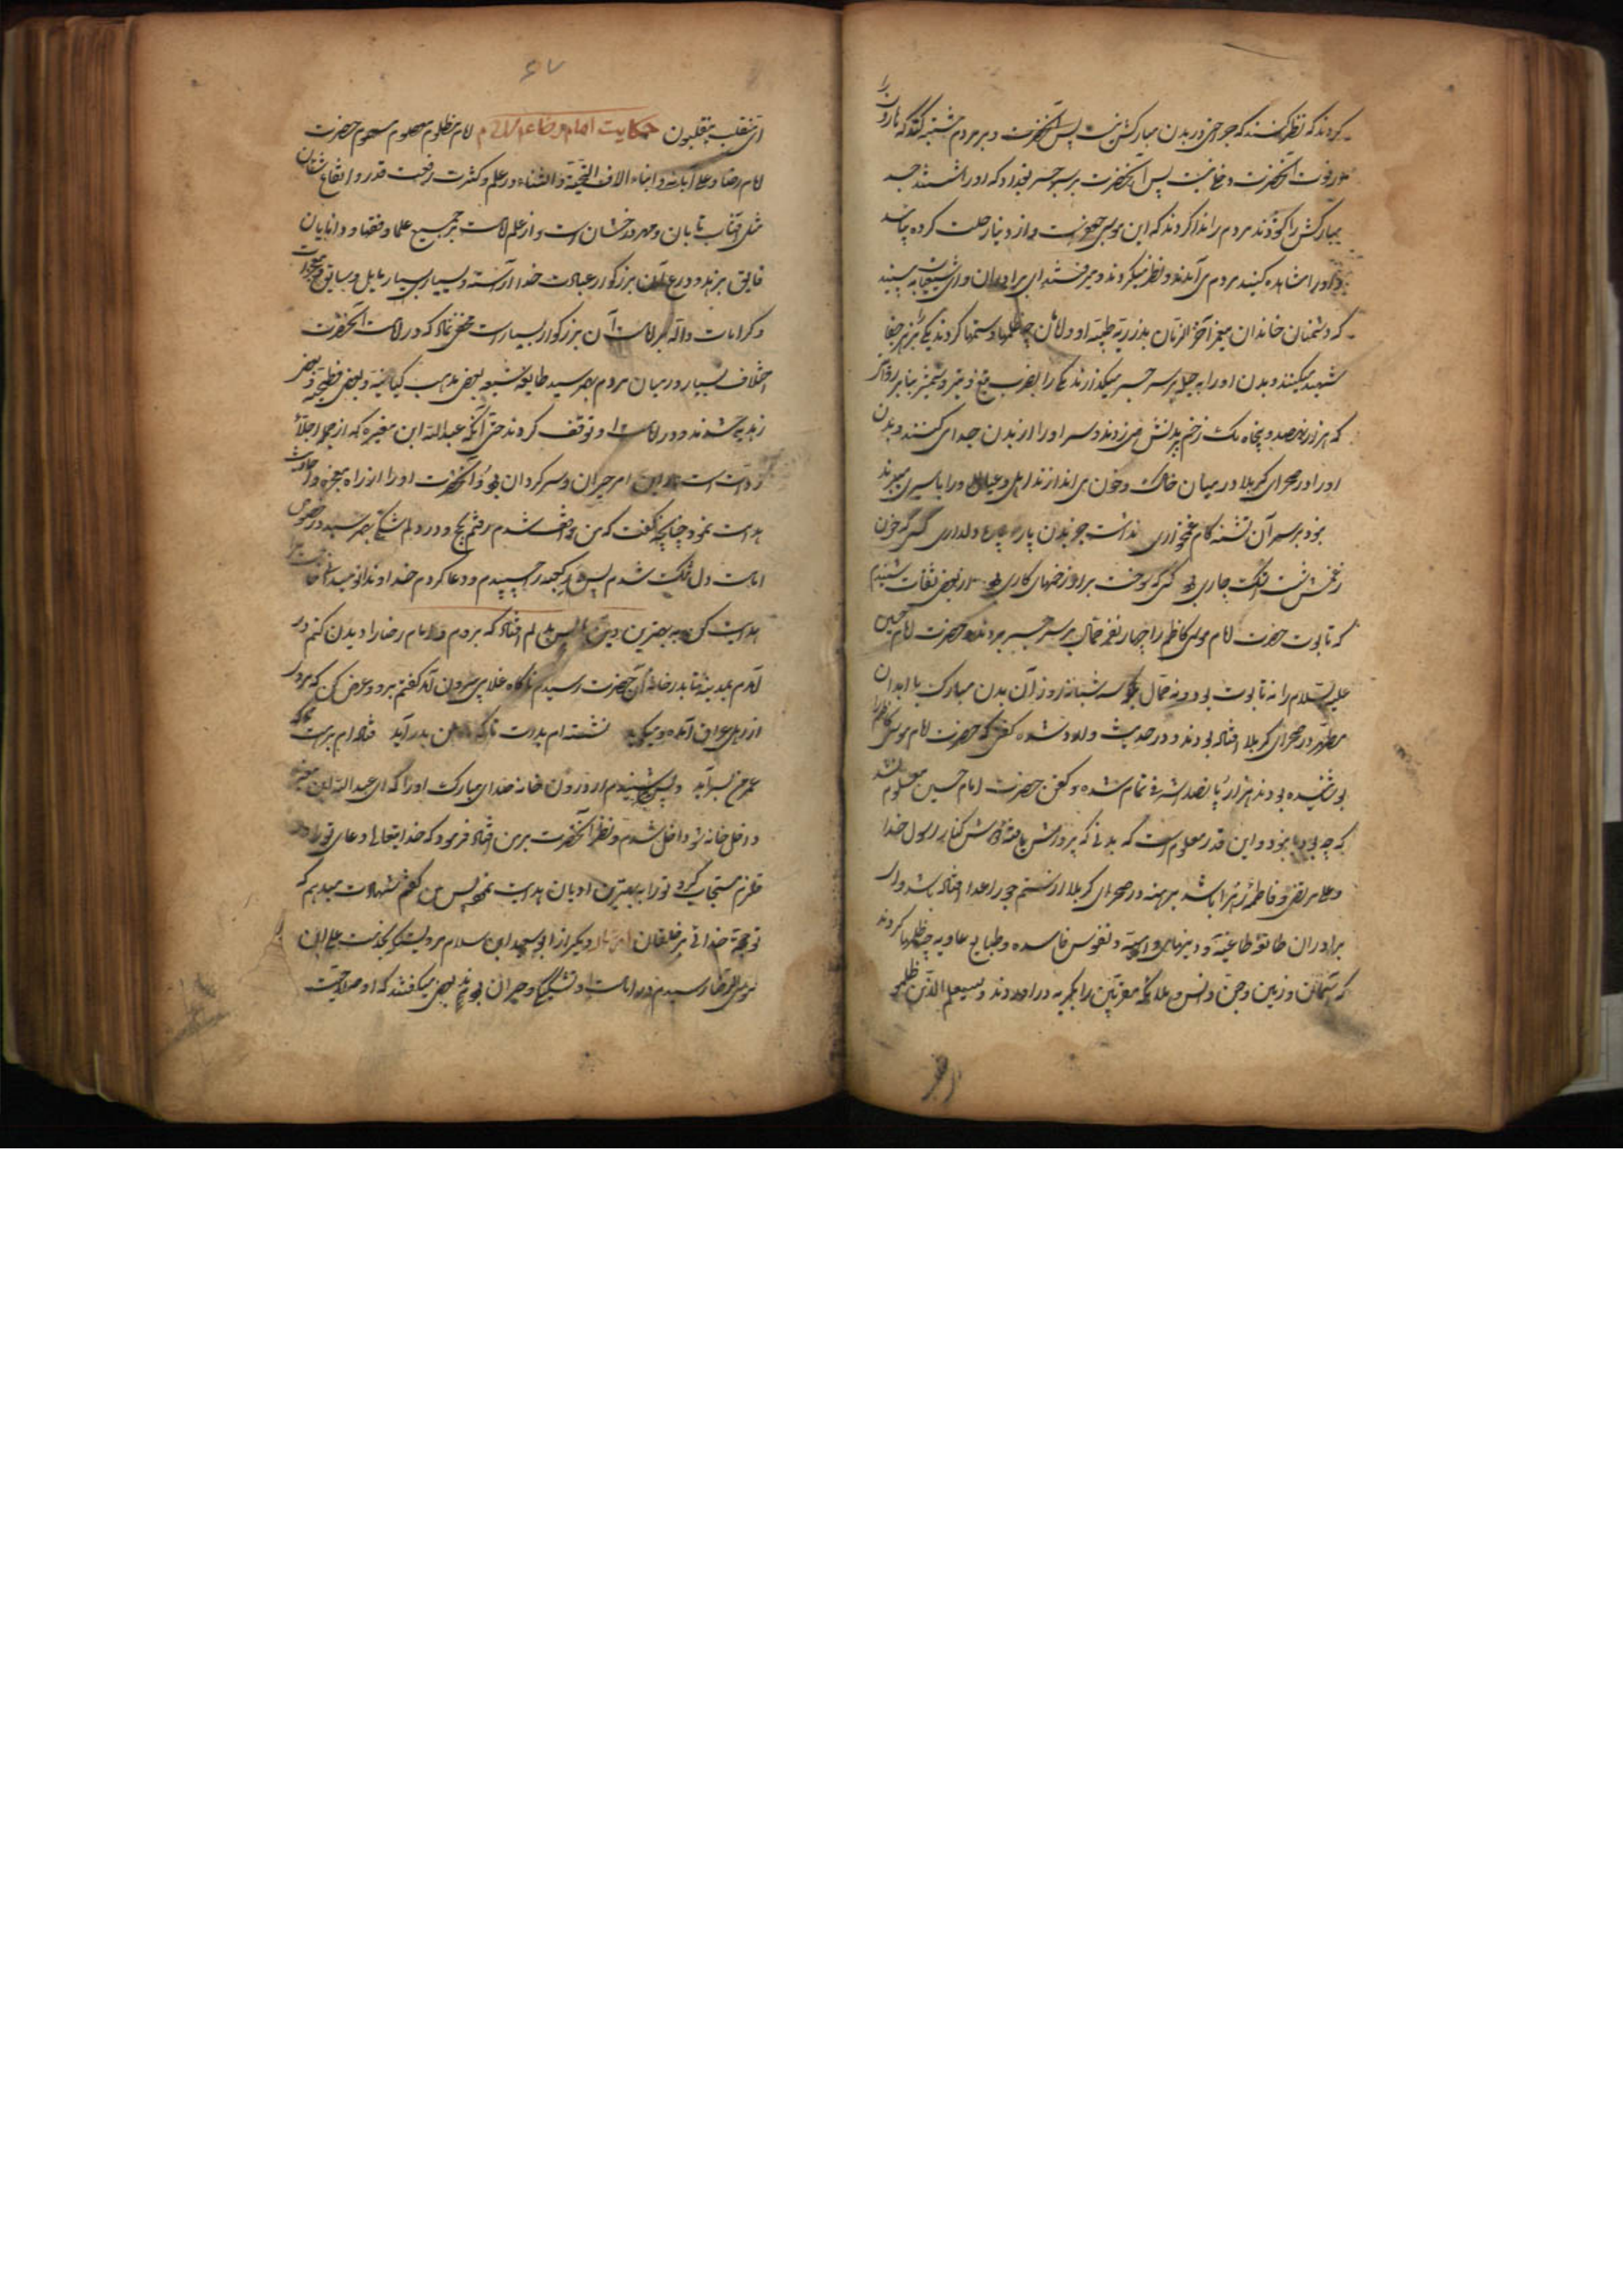 کردند که نظر کنند که جراحتی در بدن مبارکش نیست پس آنحضرت و بر مردم مشتبه کند که هارون را
در فوت آنحضرت دخلی نیست پس آنحضرت بر سر جسر بغداد که او را شستند جسد
مبارکش را گذاردند مردم را ندا کردند که این موسی جعفر است و از دنیا رحلت کرده بیائید
و او را مشاهده کنید مردم می آمدند و نظر میکردند و میرفتند ای برادران و ای شیعیان به بینید
که دشمنان خاندان پیغمبر آخر الزمان بذریه طیبه او و امامان چه ظلمها و ستمها کردند یکی را بزهر جفا
شهید میکنند و بدن او را بر سر جسر میگذارند یکی را بضرب تیغ و تیر و شمشیر بنا بر روایتی
که هزار و نهصد و پنجاه یک زخم بر بدنش میزدند و سر او را از بدن جدا می کنند و بدن
او را در صحرای کربلا در میان خاک و خون می اندازند اهل و عیال او را باسیری میبرند
نبود بر سر آن تشنه کام غمخواری نداشت جز بدن پاره پاره دلداری کسی که خون
زخمش شست اشک جاری بود کسی که سوخت بر او زخمهای کاری بود از بعضی ثقات شنیدم
که تابوت حضرت امام موسی کاظم را چهار نفر حمال بر سر جسر بردند و حضرت امام حسین
علیه السلام را نه تابوت بود و نه حمال بلکه سه شبانه روز آن بدن مبارک با ابدان
مطهر در صحرای کربلا افتاده بودند و در حدیث وارد شده کفنی که حضرت امام موسی کاظم را
پوشیده بودند هزار و پانصد اشرفی تمام شده و کفن حضرت امام حسین معلوم نشد
که چه بود یا نبود و این قدر معلوم است که بدنی که پرورش یافته آغوش کنار رسول خدا
و علی مرتضی و فاطمه زهرا باشد برهنه در صحرای کربلا از ستم جور اعدا افتاده باشد وای
برادران طائفه طاغیه و دینهای واهیه و نفوس فاسده و طبایع عاویه چه ظلمها کردند
که آسمان و زمین و جن و انس و ملائکه مقربین را بگریه در آوردند و سیعلم الذین ظلموا
۶۷
ای منقلب ینقلبون حکایت امام رضا علیه السلام امام مظلوم معصوم مسموم حضرت
امام رضا و علی آبائه و ابناه الاف التحیة و الثناء در علم و کثرت رفعت قدر و ارتفاع شان
مثل آفتاب تابان و مهر درخشان است و از علم امامت بر جمیع علما و فقها و دانایان
فایق بزهد و ورع آن بزرگوار عبادت خدا آراسته و بسیاری بسیار مایل و سابق و معجزات
و کرامات و ادله بر امامت آن بزرگوار بسیار است مخفی نماند که در امامت آنحضرت
اختلاف بسیار در میان مردم بهم رسید طایفه شیعه بعضی مذهب کیانیه و بعضی فطحیه و بعضی
زیدیه شدند و در امامت او توقف کردند حتی آنکه عبدالله ابن مغیره که از جمله اجلاء
روات است در این امر حیران و سرگردان بود و آنحضرت او را از راه معجزه
هدایت نمود چنانچه گفت که من واقف شدم رفتم بحج و در دلم شکی بهم رسید در خصوص
امامت دل تنگ شدم پس بر کعبه در چسبیدم و دعا کردم خداوندا تو میدانی حاجت مرا
هدایت کن به بهترین دین ها پس بدلم افتاد که بروم و امام رضا را دیدن کنم در
آمدم بمدینه تا بدر خانه آن حضرت رسیدم ناگاه غلامی بیرون آمد گفتم برو و عرض کن که مردی
از اهل عراق آمده و میگوید نشسته ام بدرت تا که من بدر آید فتاده ام برهت تا که
عمرم بسر آید پس شنیدم از درون خانه صدای مبارک او را که ای عبدالله ابن مغیره
داخل خانه شو داخل شدم و نظر آنحضرت بر من افتاد فرمود که خدایتعالی دعای تو را در
مستجاب کرد و ترا به بهترین ادیان هدایت نمود پس من گفتم شهادت میدهم که
تو حجة خدائی بر خلقان دیگر از ابو سعید ابن سلام مرویست که بخدمت علی ابن
موسی الرضا رسیدم در امامت او شک و حیران بودند بعضی میگفتند که او صلاحیت